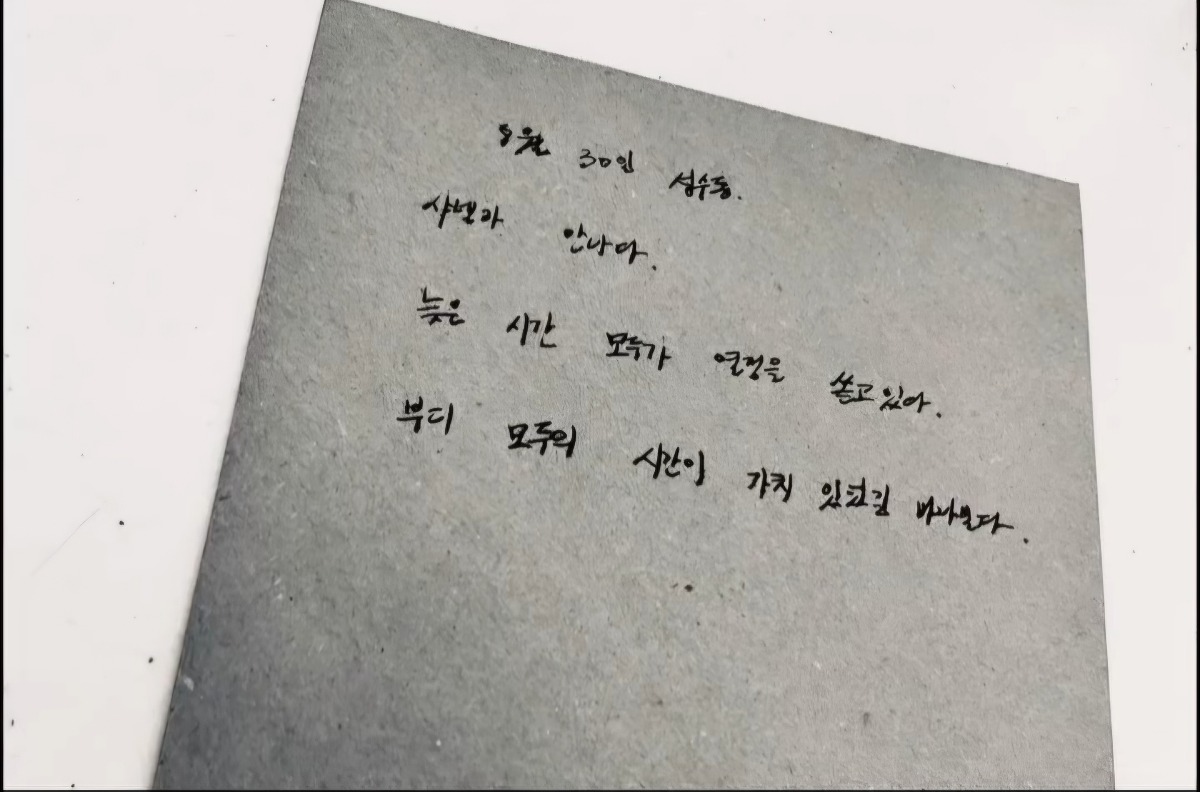 8월 30일 성수동.
샤넬과 만나다.
늦은 시간 모두가 열정을 쏟고 있다.
부디 모두의 시간이 가치 있었길 바라본다.